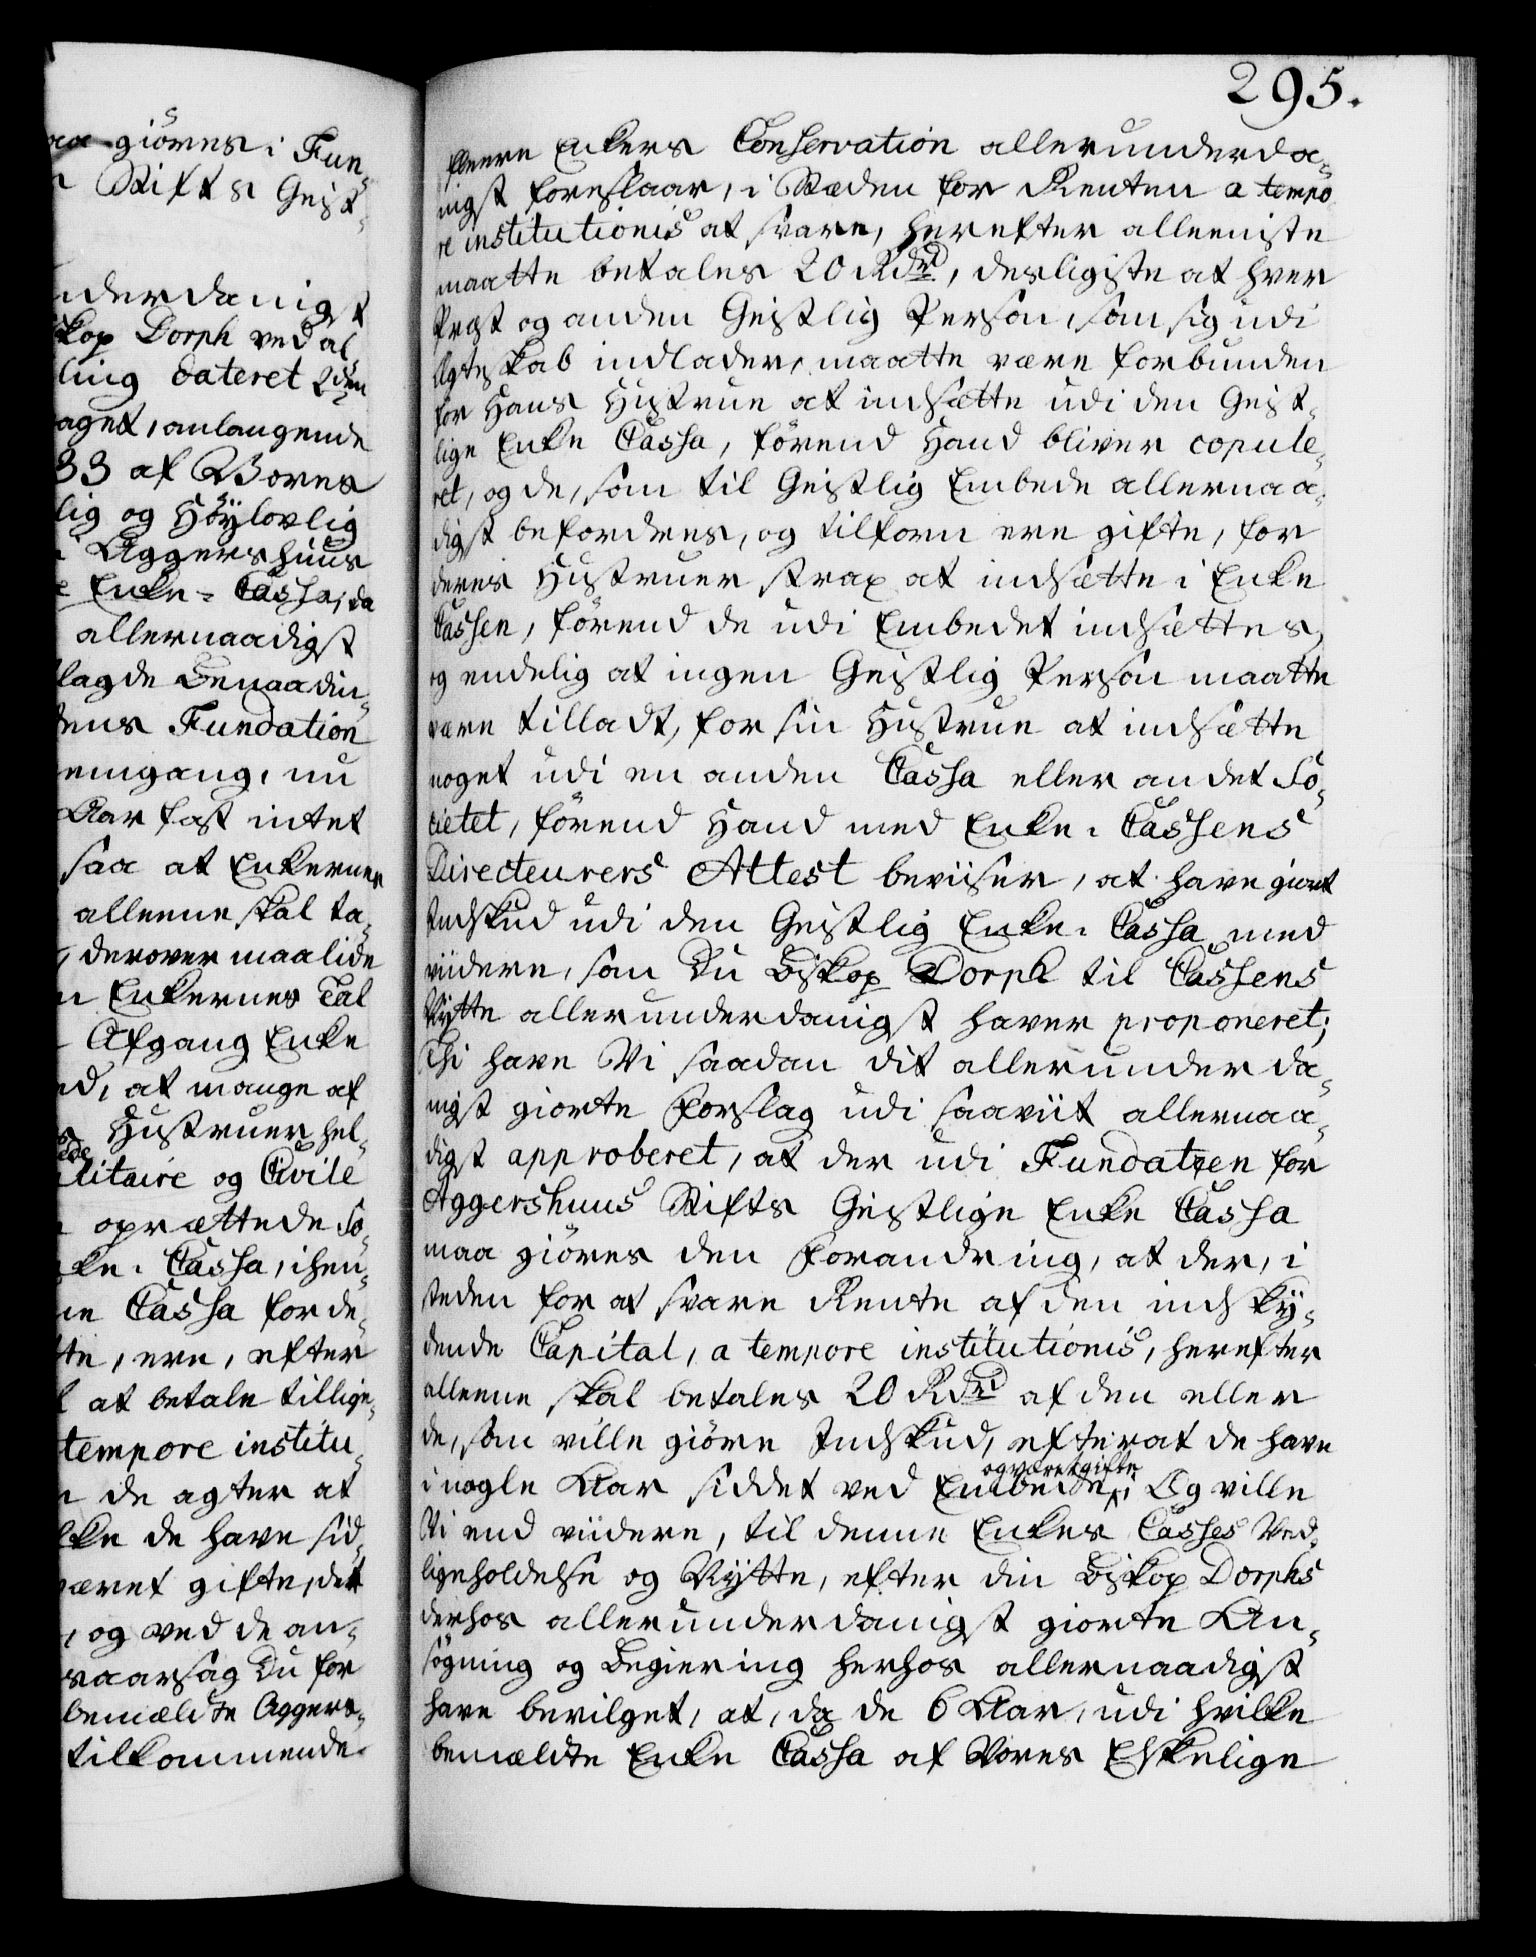 aa giöres i Fun-
Stifts Geist-
nderdanigst
kop Dorph ved al-
ling dateret 2den
aget, anlangende
33 af Vores
lig og Höylovlig
Aggershuus
Enke-Cassa, da
allernaadigst
lagde Benaadin-
dens Fundation
emgang, nu
Aar fast intet
saa at Enkerner
alleene skal ta-
, derover maa lide
Enkernes Tal
Afgang Enke
ed, at mange af
Hustruer hel-
litaire og Civile
oprættede So-
ke-Cassa, ihen-
ne Cassa forde-
te, ere, efter
at betale tillige
tempore institu-
de agter at
lke de have sid-
været gifte, det
, og ved de an-
vaarsag Du for
bemældte Aggers-
tilkommende
295.
fleere Enkers Conservation allerunderda-
nigst foreslaar, i Stæden for Renten a tempo
re institutionis at svare, herefter alleeniste
maatte betales 20 Rdr, desligiste at hver
Præst og anden Geistlig Person, som sig udi
Ægteskab indlader, maatte være forbunden
for Hans Hustrue at indsætte udi den Geist-
lige Enke Cassa, förend Hand bliver copule-
ret, og de, som til Geistlig Embede allernaa-
digst befordres, og tilforn ere gifte, for
deres Hustruer strax at indsætte i Enke
Cassen, förend de udi Embedet indsættes,
og endelig at ingen Geistlig Person maatte
være tilladt, for sin Hustrue at indsætte
noget udi en anden Cassa eller andet So-
cietet, förend Hand med Enke-Cassens
Directeurers Attest beviiser, at have giort
Indskud udi den Geistlig Enke-Cassa med
viidere, som Du Biskop Dorph til Cassens
Nytte allerunderdanigst haver proponeret;
Thi have Vi saadan dit allerunderda-
nigst giorte Forslag udi saaviit allernaa-
digst approberet, at der udi Fundatzen for
Aggershuus Stifts Geistlige Enke Cassa
maa giöres den Forandring, at der, i
steden for at svare Rente af den indsky-
dende Capital, a tempore institutionis, herefter
alleene skal betales 20 Rdr af den eller
de, som ville giöre Indskud, efterat de have
og været gifte
i nogle Aar siddet ved Embedet; Og ville
Vi end viidere, til denne Enkes Casses Ved-
ligeholdelse og Nytte, efter din Biskop Dorphs
derhos allerunderdanigst giorte An-
sögning og Begiering herhos allernaadigst
have bevilget, at, da de 6 Aar, udi hvilke
bemældte Enke Cassa af Vores Elskelige